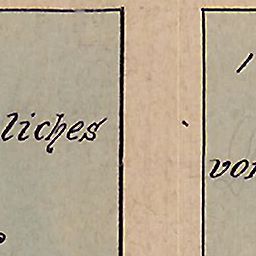 liches
von